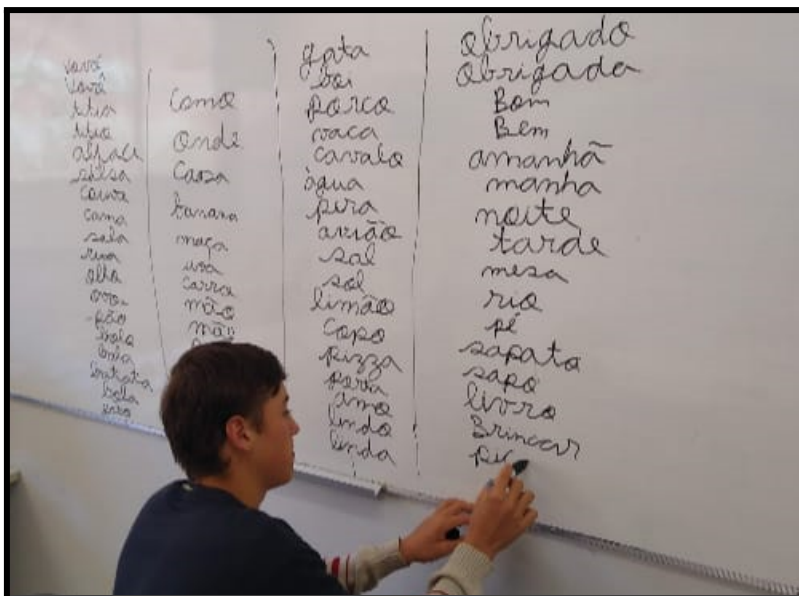 vovó
vovô
titia
titio
alface
salsa
couve
cama
sala
rua
olho
ovo
pão
bolo
batata
bola
como
onde
casa
banana
maça
uva
carro
mão
gata
boi
porco
vaca
cavalo
água
pera
avião
sal
sol
limão
copo
pizza
amo
lindo
linda
obrigado
obrigada
Bom
Bem
amanhã
manha
noite
tarde
mesa
rio
pé
sapato
sapo
livro
Brincar